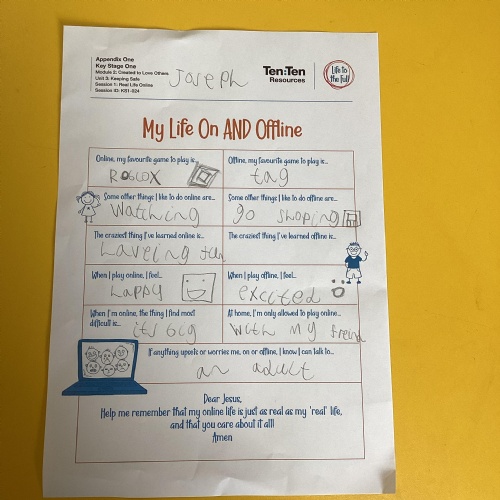 Appendix One
Key Stage One
Module 2: Created to Love Others
Unit 3: Keeping Safe
Session 1: Real Life Online
Session ID: KS1-S24
Joseph
Ten:Ten
Resources
Life to the Full
My Life On AND Offline
Online, my favourite game to play is...
Roblox
Offline, my favourite game to play is...
tag
Some other things I like to do online are...
Watching
Some other things I like to do offline are...
go shoping
The craziest thing I've learned online is...
The craziest thing I've learned offline is...
When I play online, I feel...
happy
When I play offline, I feel...
excited
When I'm online, the thing I find most
difficult is...
its big
At home, I'm only allowed to play online...
with my freind
If anything upsets or worries me, on or offline, I know I can talk to...
an adult
Dear Jesus,
Help me remember that my online life is just as real as my 'real' life,
and that you care about it all!
Amen